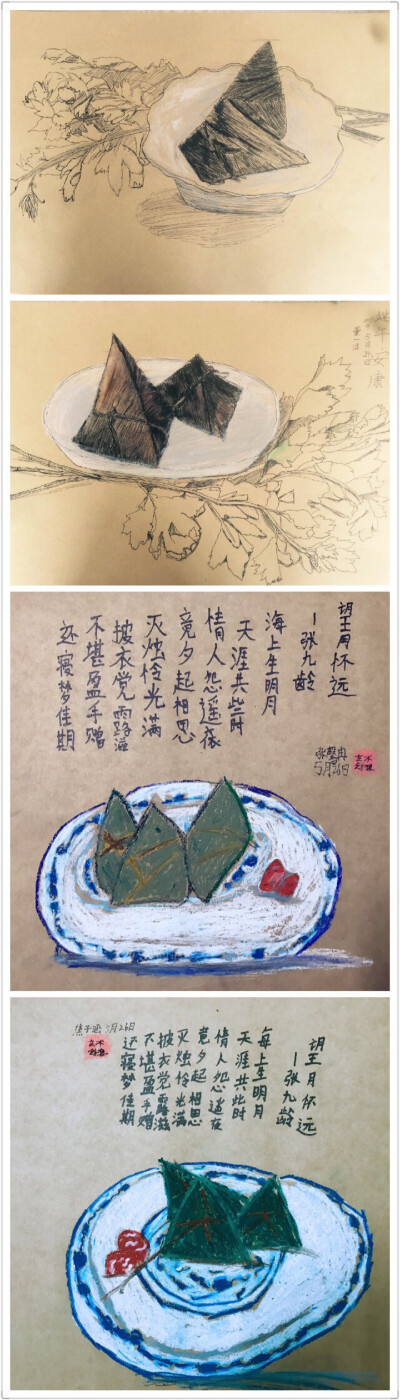 端午安康
望月怀远
—张九龄
海上生明月
天涯共此时
情人怨遥夜
竟夕起相思
灭烛怜光满
披衣觉露滋
不堪盈手赠
还寝梦佳期
5月26日
望月怀远
—张九龄
海上生明月
天涯共此时
情人怨遥夜
竟夕起相思
灭烛怜光满
披衣觉露滋
不堪盈手赠
还寝梦佳期
5月26日